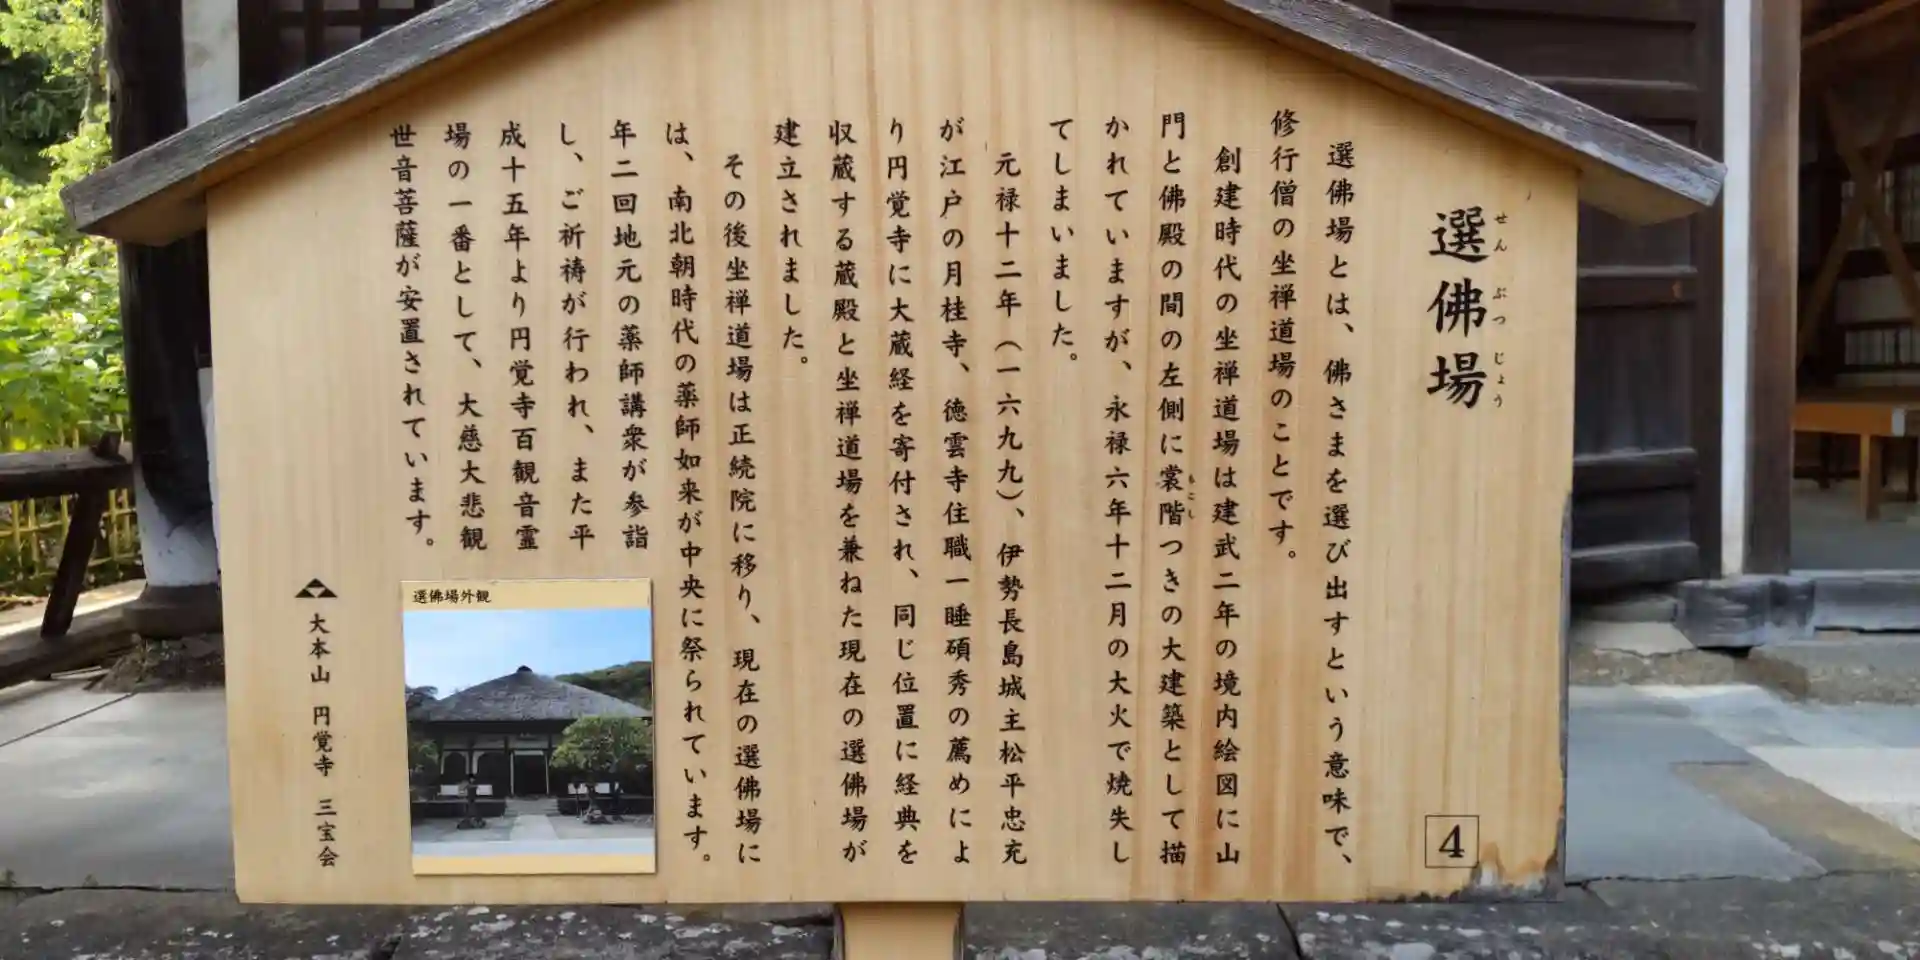 選佛場
せん ぶつ じょう
4
選佛場とは、佛さまを選び出すという意味で、
修行僧の坐禅道場のことです。
創建時代の坐禅道場は建武二年の境内絵図に山
門と佛殿の間の左側に裳階つきの大建築として描
もこし
かれていますが、永禄六年十二月の大火で焼失し
てしまいました。
元禄十二年（一六九九）、伊勢長島城主松平忠充
が江戸の月桂寺、徳雲寺住職一睡碩秀の薦めによ
り円覚寺に大蔵経を寄付され、同じ位置に経典を
収蔵する蔵殿と坐禅道場を兼ねた現在の選佛場が
建立されました。
その後坐禅道場は正続院に移り、現在の選佛場に
は、南北朝時代の薬師如来が中央に祭られています。
年二回地元の薬師講衆が参詣
し、ご祈祷が行われ、また平
成十五年より円覚寺百観音霊
場の一番として、大慈大悲観
世音菩薩が安置されています。
選佛場外観
大本山 円覚寺 三宝会